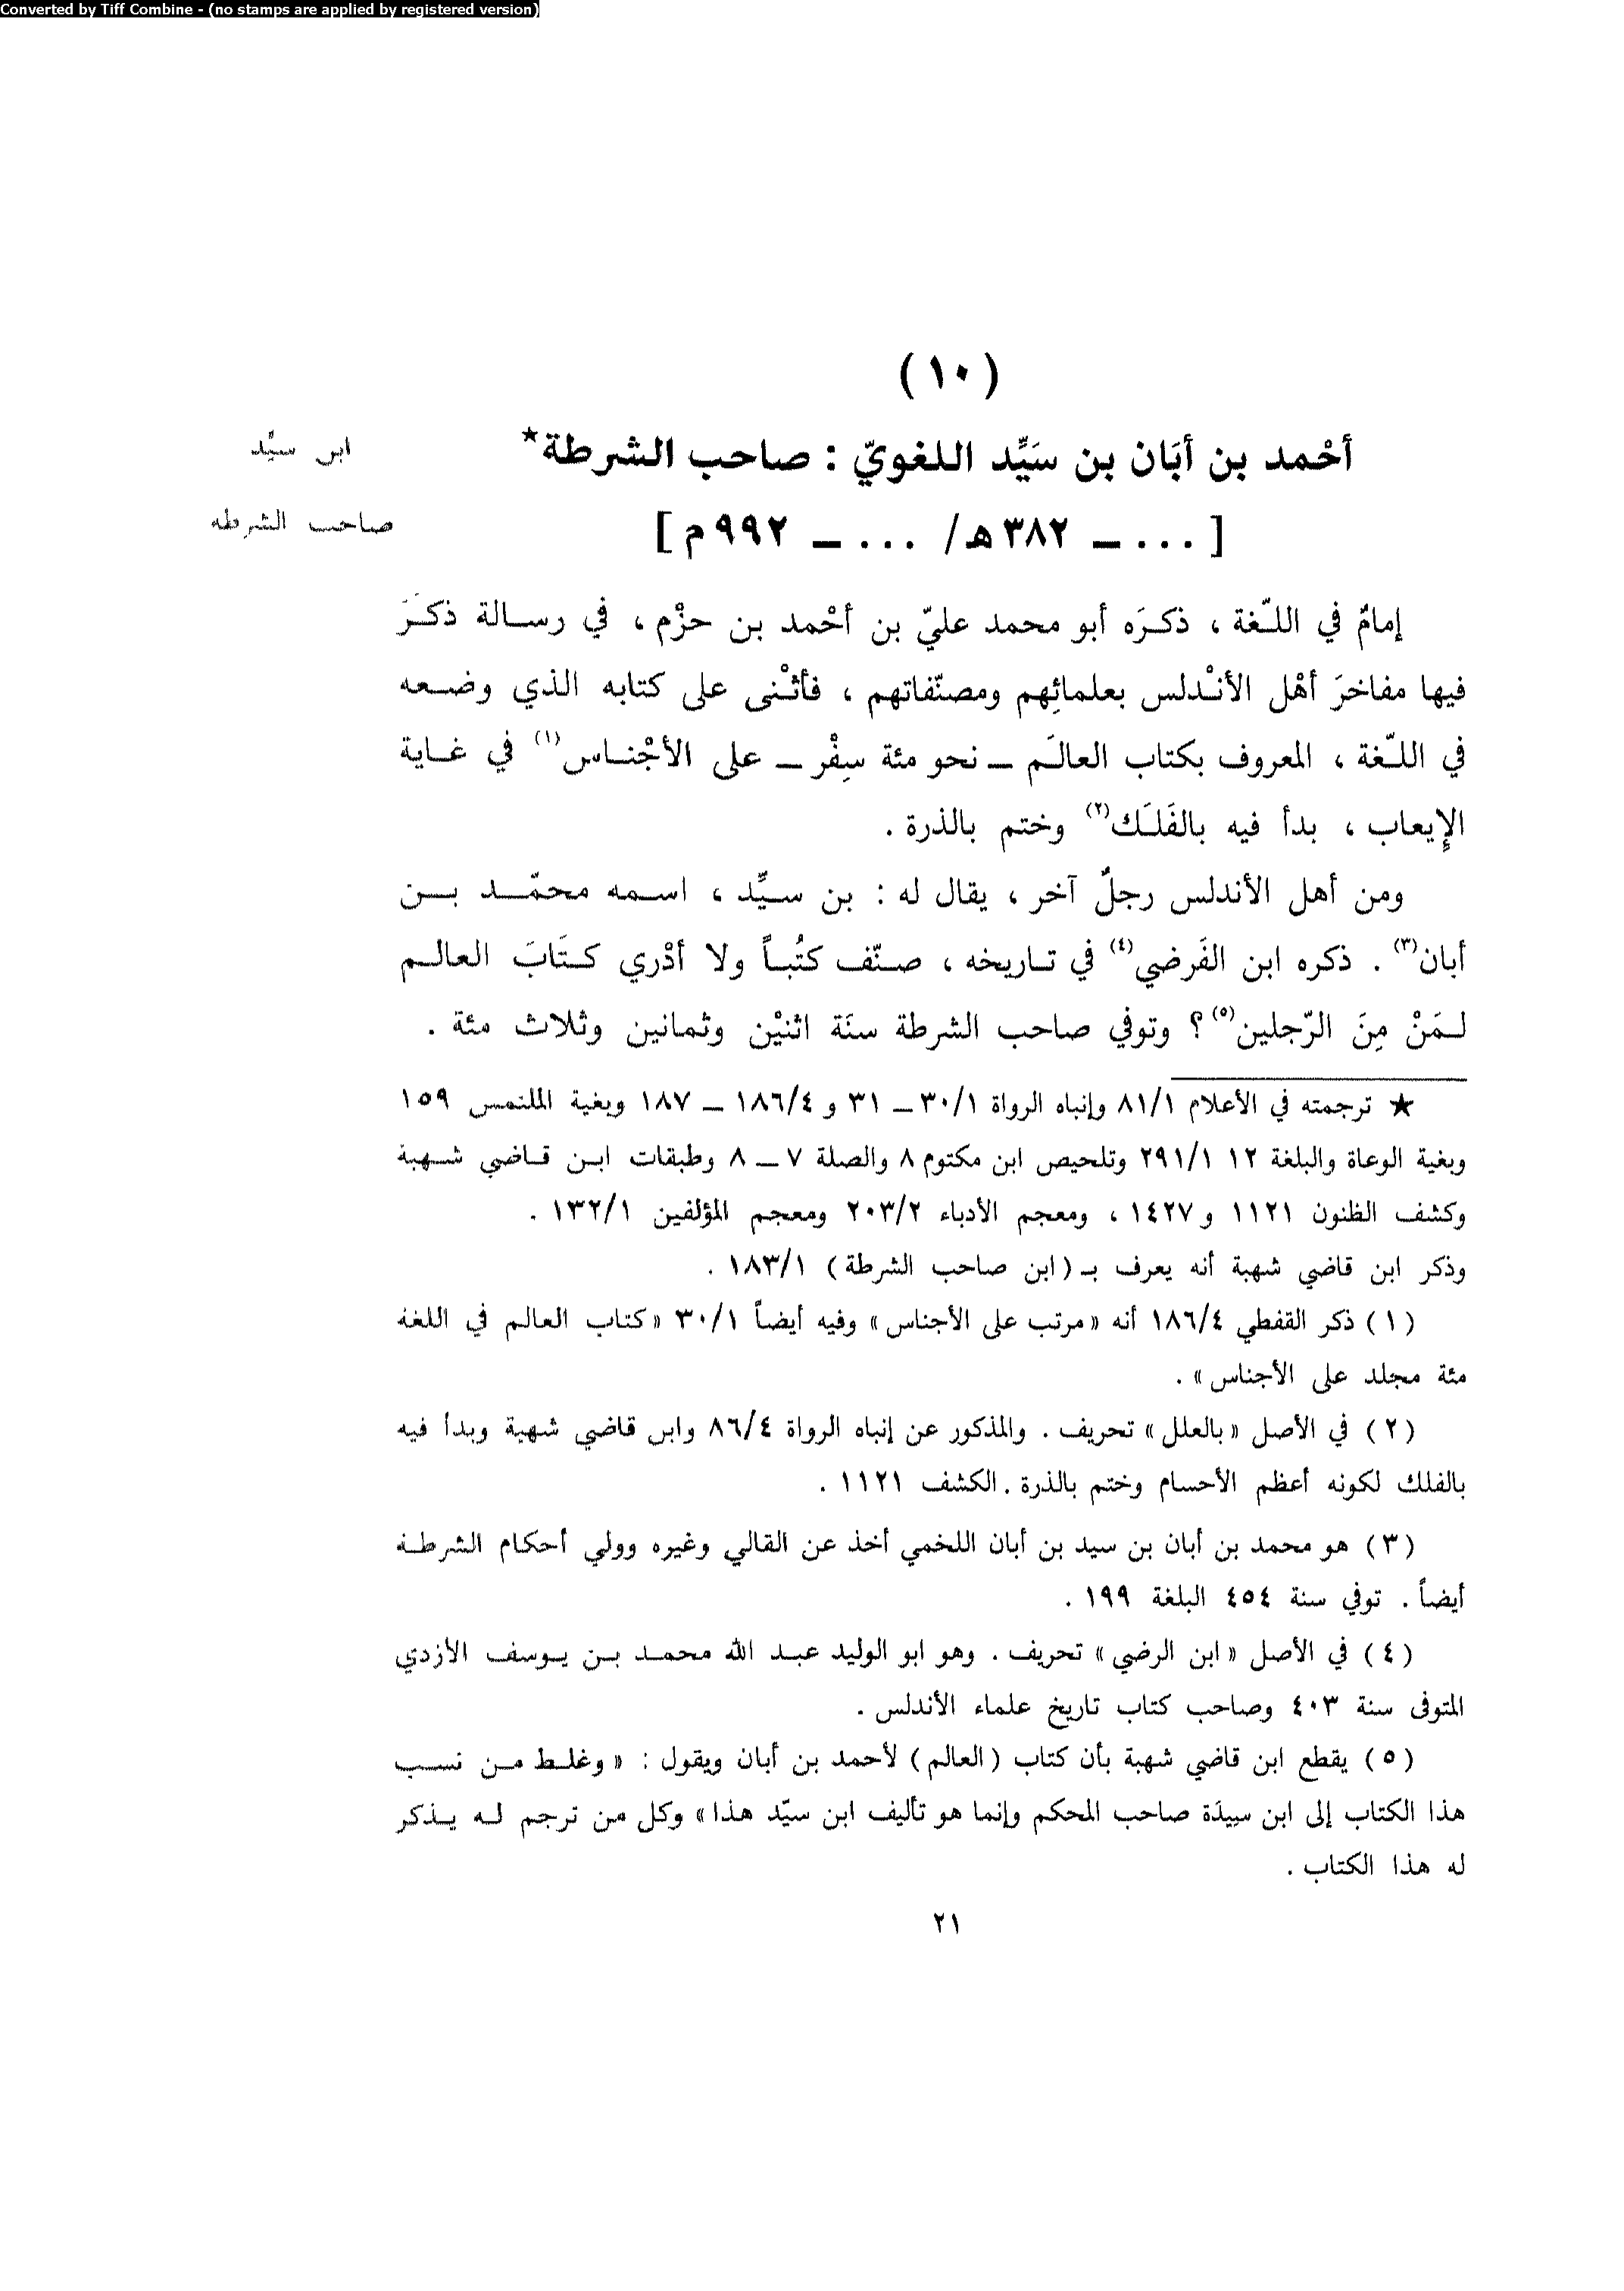 Converted by Tiff Combine - (no stamps are applied by registered version)
(١٠)
أحْمد بن أبَان بن سَيِّد اللغويّ : صاحب الشرطة*
ابن سيِّد
[ ... ــ ٣٨٢ هـ/ ... ــ ٩٩٢ م ]
صاحب الشرطه
إمامٌ في اللّغة ، ذكـرَه أبو محمد عليّ بن أحْمد بن حزْم ، في رسـالة ذكـَرَ
فيها مفاخرَ أهْل الأنْدلس بعلمائِهم ومصنّفاتهم ، فأثْـنى على كتابه الذي وضـعه
في اللـّغة ، المعروف بكتاب العالَم ــ نحو مئة سِفْر ــ على الأجْنـاس(١) في غـاية
الإيعاب ، بدأ فيه بالفَلَـك(٢) وختم بالذرة .
ومن أهل الأندلس رجلٌ آخر ، يقال له : بن سـيِّد ، اسـمه محمّـد بـن
أبان(٣) . ذكره ابن الفَرضي(٤) في تـاريخه ، صـنّف كتُبـاً ولا أدْري كـتَابَ العالـم
لـمَنْ مِنَ الرّجلين(٥) ؟ وتوفي صاحب الشرطة سنَة اثنيْن وثمانين وثلاث مئة .
★ ترجمته في الأعلام ٨١/١ وإنباه الرواة ٣٠/١ ــ ٣١ و ١٨٦/٤ ــ ١٨٧ وبغية الملتمس ١٥٩
وبغية الوعاة والبلغة ١٢ ٢٩١/١ وتلخيص ابن مكتوم ٨ والصلة ٧ ــ ٨ وطبقات ابـن قـاضي شـهبة
وكشف الظنون ١١٢١ و ١٤٢٧ ، ومعجم الأدباء ٢٠٣/٢ ومعجم المؤلفين ١٣٢/١ .
وذكر ابن قاضي شهبة أنه يعرف بـ (ابن صاحب الشرطة) ١٨٣/١ .
(١) ذكر القفطي ١٨٦/٤ أنه «مرتب على الأجناس» وفيه أيضاً ٣٠/١ «كتاب العالم في اللغة
مئة مجلد على الأجناس» .
(٢) في الأصل «بالعلل» تحريف . والمذكور عن إنباه الرواة ٨٦/٤ وابن قاضي شهبة وبدأ فيه
بالفلك لكونه أعظم الأجسام وختم بالذرة . الكشف ١١٢١ .
(٣) هو محمد بن أبان بن سيد بن أبان اللخمي أخذ عن القالي وغيره وولي أحكام الشرطـة
أيضاً . توفي سنة ٤٥٤ البلغة ١٩٩ .
(٤) في الأصل «ابن الرضي» تحريف . وهو ابو الوليد عبـد الله محمـد بـن يـوسف الأزدي
المتوفى سنة ٤٠٣ وصاحب كتاب تاريخ علماء الأندلس .
(٥) يقطع ابن قاضي شهبة بأن كتاب (العالم) لأحمد بن أبان ويقول : «وغلـط مـن نسـب
هذا الكتاب إلى ابن سيِدَة صاحب المحكم وإنما هو تأليف ابن سيّد هذا» وكل من ترجم لـه يـذكر
له هذا الكتاب .
٢١